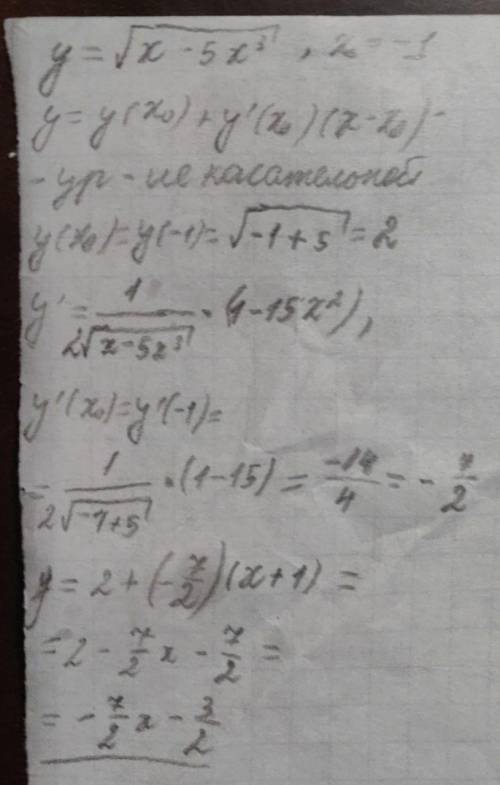 y = √(x - 5x³), x₀ = -1
y = y(x₀) + y'(x₀)(x - x₀) -
- ур - ие касательной
y(x₀) = y(-1) = √(-1 + 5) = 2
y' = 1/(2√(x - 5x³)) · (1 - 15x²),
y'(x₀) = y'(-1) =
= 1/(2√(-1 + 5)) · (1 - 15) = -14/4 = - 7/2
y = 2 + (-7/2)(x + 1) =
= 2 - 7/2 x - 7/2 =
= - 7/2 x - 3/2